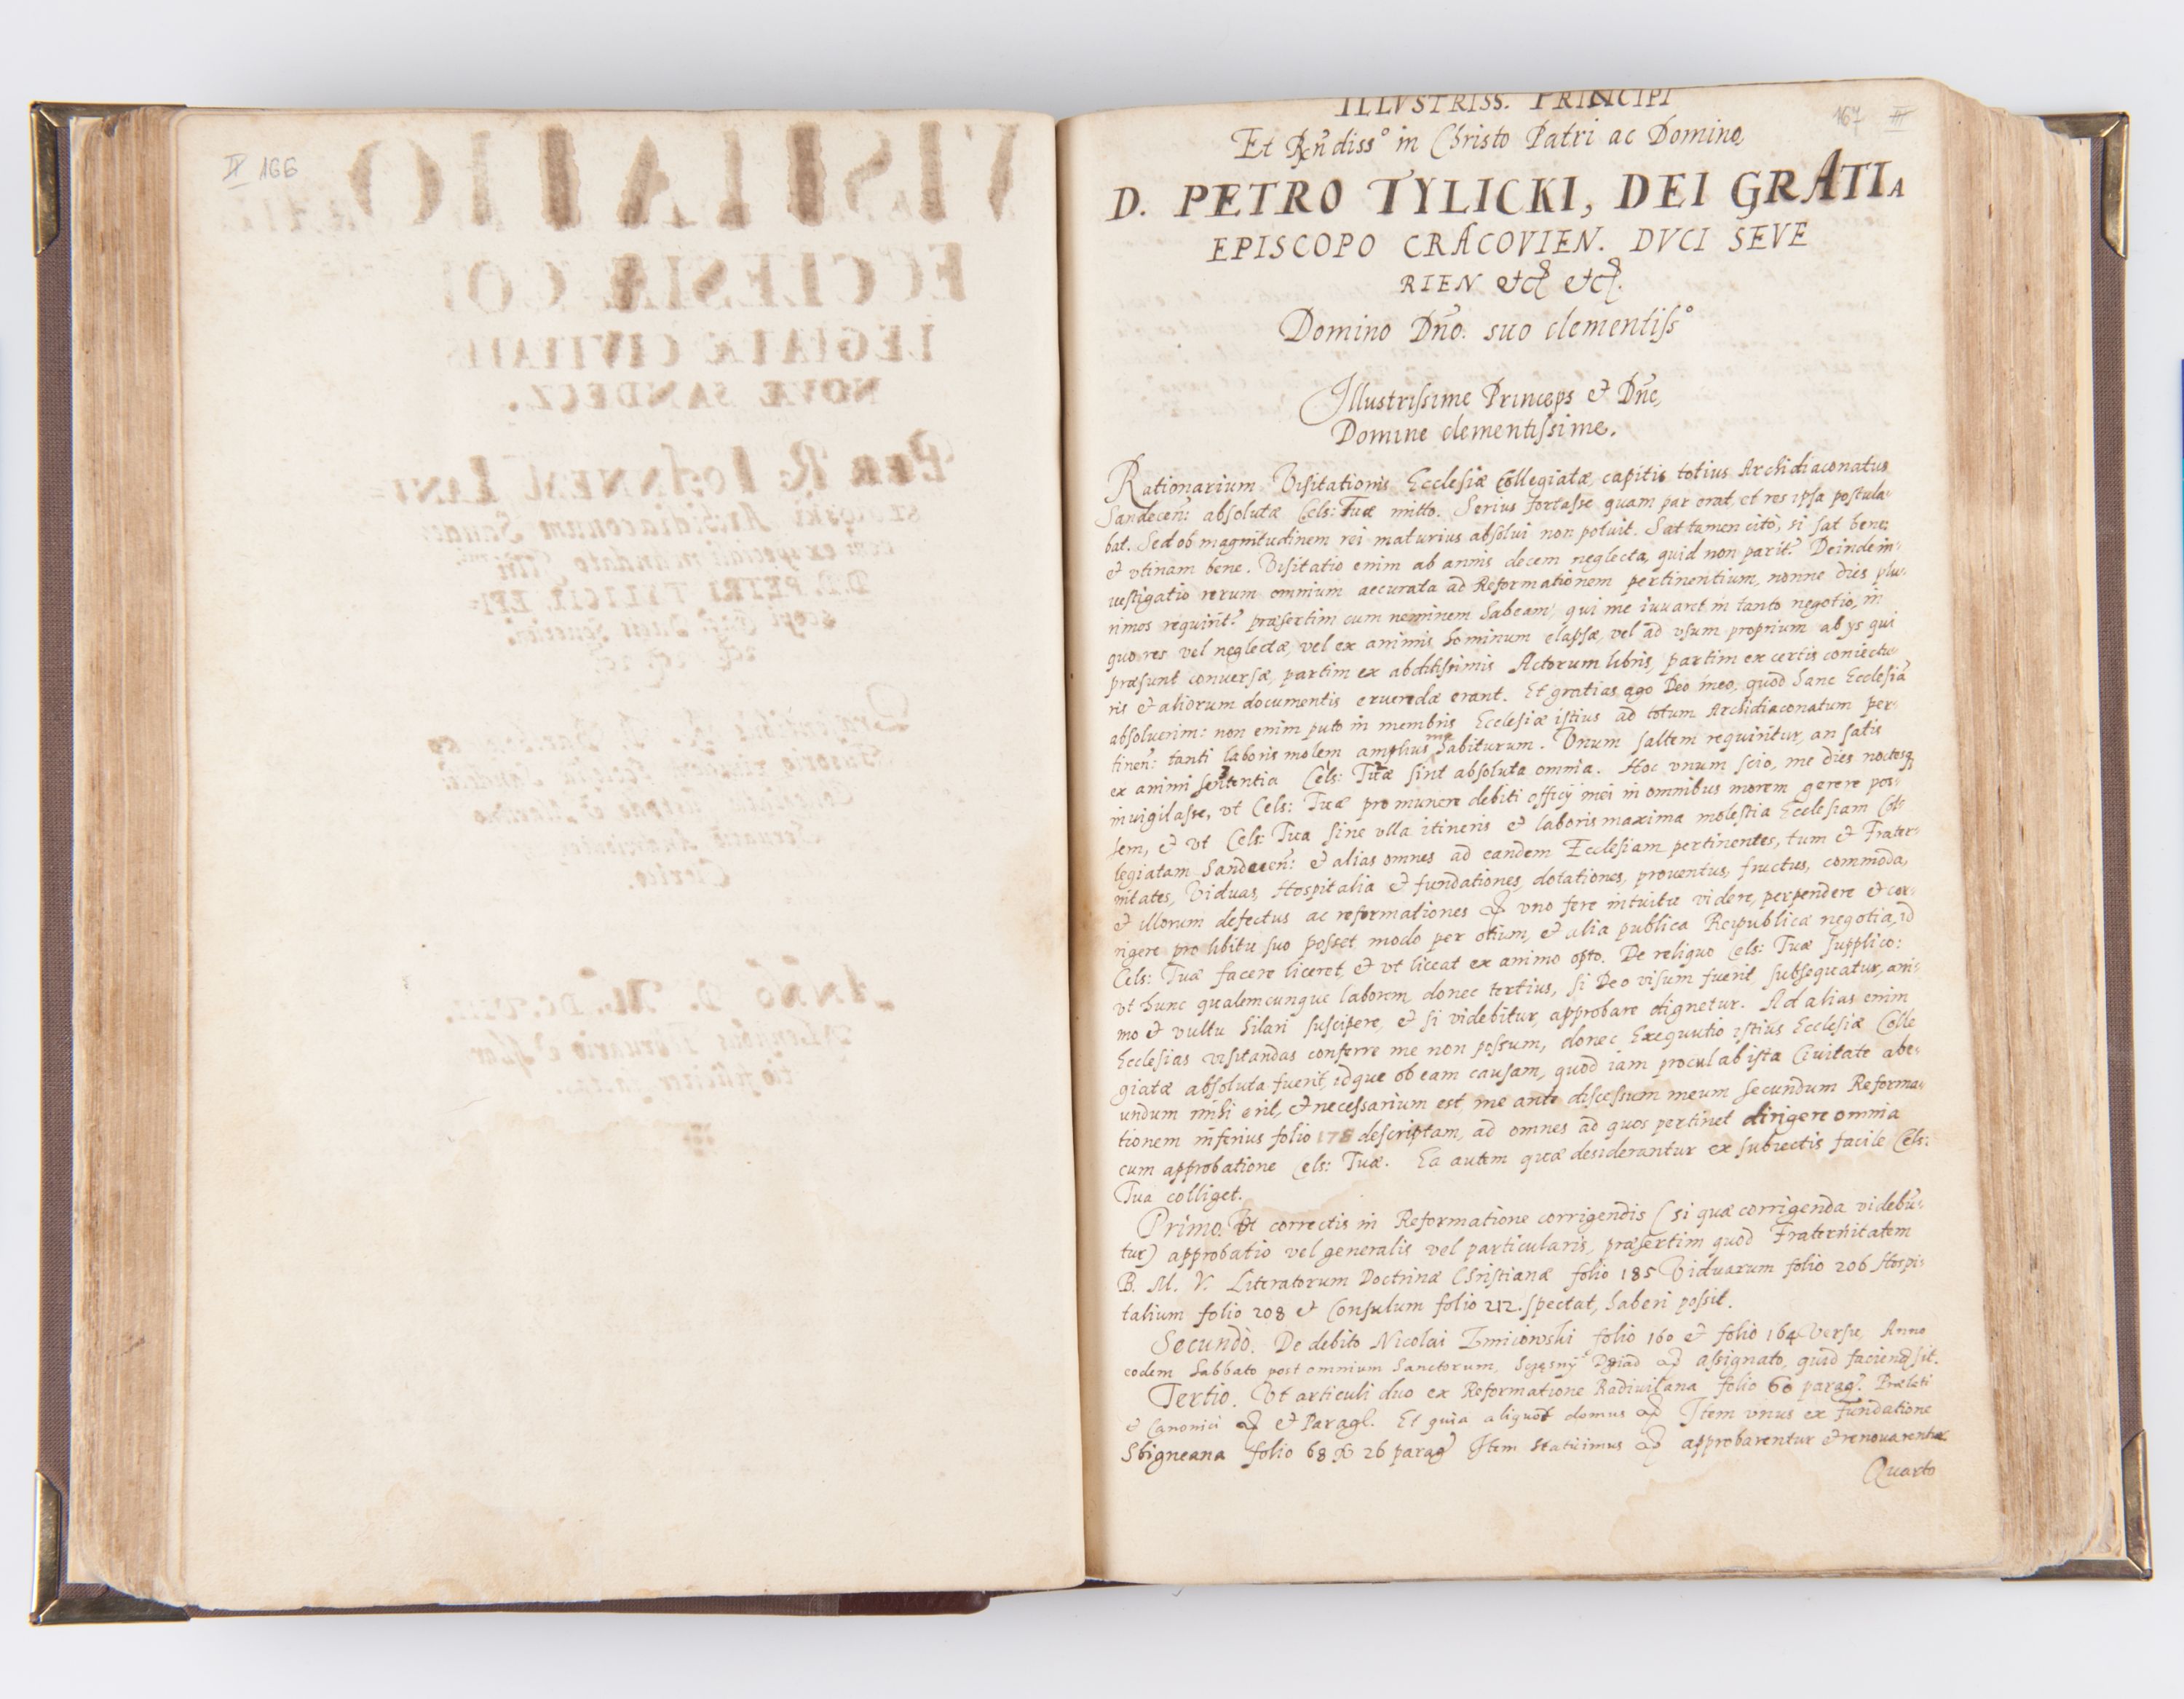 II 166
167 III
ILLVSTRISS. PRINCIPI
Et Rñdissº in Christo Patri ac Domino,
D. PETRO TYLICKI, DEI GRATIA
EPISCOPO CRACOVIEN. DVCI SEVE
RIEN etc etc.
Domino Dño. suo clementissº
Illustrissime Princeps & Dñe,
Domine clementissime.
Rationarium Visitationis Ecclesiæ Collegiatæ, capitis totius Archidiaconatus
Sandecen: absolutæ Cels: Tuæ mitto. Serius fortasse quam par erat, et res ipsa postula-
bat. Sed ob magnitudinem rei maturius absolui non potuit. Sat tamen citò, si sat bene:
& vtinam bene. Visitatio enim ab annis decem neglecta, quid non parit? Deinde in-
uestigatio rerum omnium accurata ad Reformationem pertinentium, nonne dies plu-
rimos requirit? præsertim cum neminem habeam, qui me iuuaret in tanto negotio, in
quo res vel neglectæ, vel ex animis hominum elapsæ, vel ad vsum proprium ab ys qui
præsunt conuersæ, partim ex abditissimis Actorum libris, partim ex certis coniectu-
ris & aliorum documentis eruendæ erant. Et gratias ago Deo meo, quod hanc Ecclesiã
absoluerim: non enim puto in membris Ecclesiæ istius ad totum Archidiaconatum per-
tinen: tanti laboris molem amplius me habiturum. Vnum saltem requiritur, an satis
ex animi sententia Cels: Tuæ sint absoluta omnia. Hoc vnum scio, me dies noctesq
inuigilasse, vt Cels: Tuæ pro munere debiti officÿ mei in omnibus morem gerere pos-
sem, & vt Cels: Tua sine vlla itineris & laboris maxima molestia Ecclesiam Col-
legiatam Sandecen: & alias omnes ad eandem Ecclesiam pertinentes, tum & Frater-
nitates, Viduas, Hospitalia & fundationes, dotationes, prouentus, fructus, commoda,
& illorum defectus ac reformationes vno fere intuitu videre, perpendere & cor-
rigere pro libitu suo posset, modo per otium, & alia publica Reipublicæ negotia, id
Cels: Tuæ facere liceret, & vt liceat ex animo opto. De reliquo Cels: Tuæ supplico:
vt hunc qualemcunque laborem donec tertius, si Deo visum fuerit, subsequatur, ani-
mo & vultu hilari suscipere, & si videbitur, approbare dignetur. Ad alias enim
Ecclesias visitandas conferre me non possum, donec Exequutio istius Ecclesiæ Colle
giatæ absoluta fuerit, idque ob eam causam, quod iam procul ab ista Ciuitate abe-
undum mihi erit, & necessarium est me ante discessum meum secundum Reforma-
tionem inferius folio 175 descriptam, ad omnes ad quos pertinet dirigere omnia
cum approbatione Cels: Tuæ. Ea autem quæ desiderantur ex subiectis facile Cels:
Tua colliget.
Primo. Vt correctis in Reformatione corrigendis (si quæ corrigenda videbũ-
tur) approbatio vel generalis vel particularis, præsertim quod Fraternitatem
B. M. V. Literatorum Doctrinæ Christianæ folio 185 Viduarum folio 206 Hospi-
talium folio 208 & Consulum folio 212. spectat, haberi possit.
Secundò. De debito Nicolai Zmiiowski folio 160 & folio 164 Verso, Anno
eodem Sabbato post omnium Sanctorum, assignato, quid faciend sit.
Tertio. Vt articuli duo ex Reformatione Radiuilana folio 60 parag. Prælati
& Canonici & Paragl. Et quia aliquot domus Item vnus ex fundatione
Sbigneana folio 68 26 parag Item Statuimus approbarentur & renouarentur
Quarto